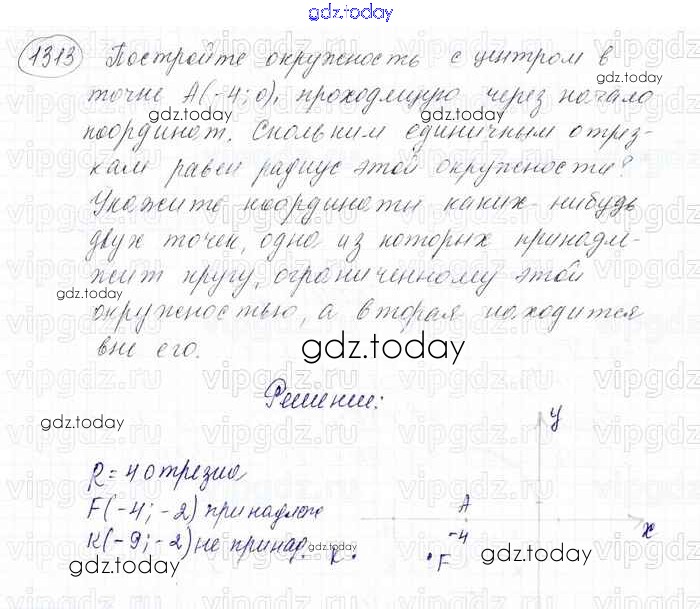 gdz.today
1313 Постройте окружность с центром в
точке А(-4; 0), проходящую через начало
координат. Скольким единичным отрез-
кам равен радиус этой окружности?
Укажите координаты каких-нибудь
двух точек, одна из которых принадле-
жит кругу, ограниченному этой
окружностью, а вторая находится
вне его.
gdz.today
Решение:
R = 4 отрезка
F(-4; -2) принадлеж
К(-9; -2) не принад.
y
A
-4
x
F
gdz.today
vipgdz.ru